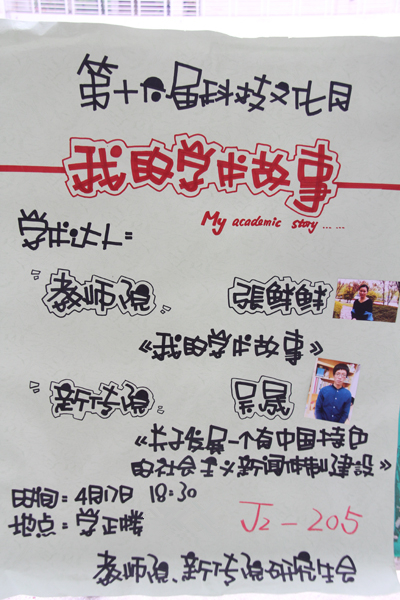 第十届科技文化月
我的学术故事
My academic story ... ...
学术达人:
"教师院" 張鲜鲜
《我的学术故事》
"新传院" 吴晟
《关于发展一个有中国特色
的社会主义新闻体制建设》
时间:4月17日 18:30
地点:学正楼 J2-205
教师院、新传院研究生会